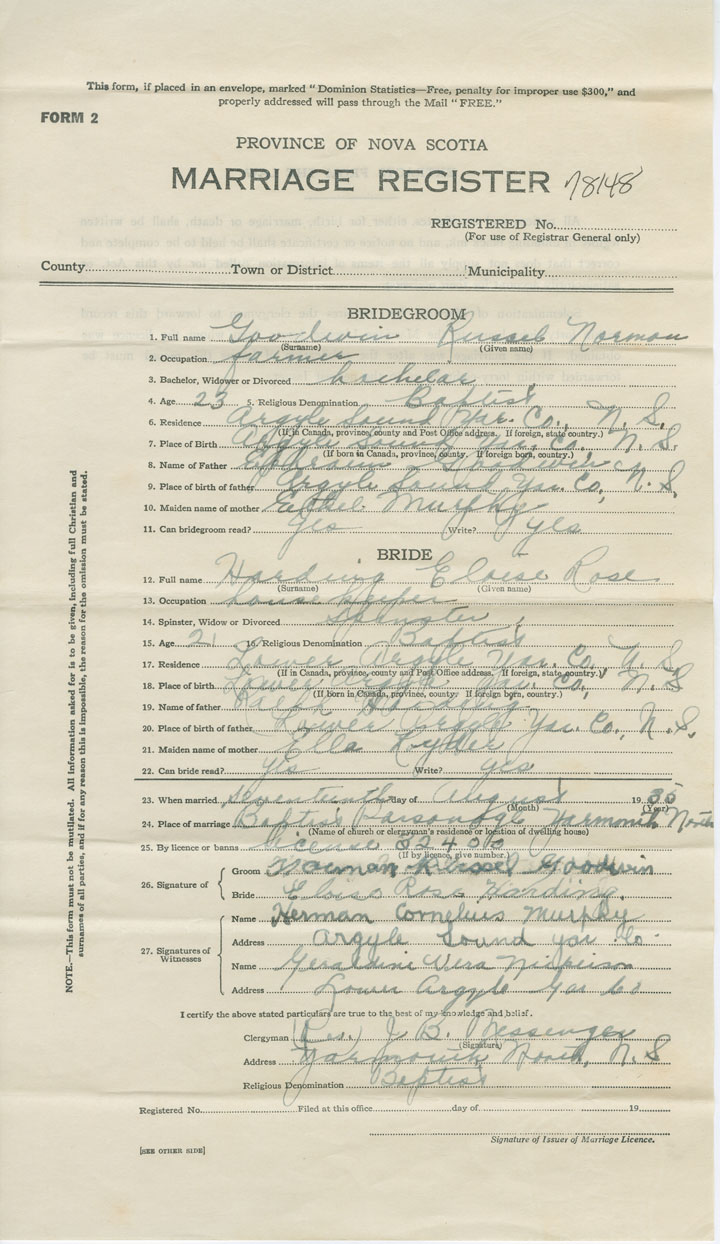 This form, if placed in an envelope, marked "Dominion Statistics—Free, penalty for improper use $300," and
properly addressed will pass through the Mail "FREE."
FORM 2
PROVINCE OF NOVA SCOTIA
MARRIAGE REGISTER 78148
REGISTERED No.
(For use of Registrar General only)
County Town or District Municipality
BRIDEGROOM
1. Full name Goodwin Russel Norman
(Surname) (Given name)
2. Occupation farmer
3. Bachelor, Widower or Divorced bachelar
4. Age 23 5. Religious Denomination Baptist
6. Residence Argyle Sound Yar. Co., N. S.
(If in Canada, province, county and Post Office address. If foreign, state country.)
7. Place of Birth Argyle Sound Yar. Co., N. S.
(If born in Canada, province, county. If foreign born, country.)
8. Name of Father Goodwin
9. Place of birth of father Argyle Sound Yar. Co., N. S.
10. Maiden name of mother Ethel Murphy
11. Can bridegroom read? Yes Write? yes
BRIDE
12. Full name Harding Eloise Rose
(Surname) (Given name)
13. Occupation housekeeper
14. Spinster, Widow or Divorced Spinster
15. Age 21 16. Religious Denomination Baptist
17. Residence Lower Argyle Yar. Co., N. S.
(If in Canada, province, county and Post Office address. If foreign, state country.)
18. Place of birth Lower Argyle Yar. Co., N. S
(If born in Canada, province, county. If foreign born, country.)
19. Name of father Ralph Harding
20. Place of birth of father Lower Argyle Yar. Co., N. S.
21. Maiden name of mother Ella Ryder
22. Can bride read? Yes Write? yes
23. When married seventeenth day of August 1935
(Month) (Year)
24. Place of marriage Baptist Parsonage Yarmouth North
(Name of church or clergyman's residence or location of dwelling house)
25. By licence or banns license
(If by licence, give number.)
26. Signature of
Groom Norman Russel Goodwin
Bride Eloise Rose Harding.
27. Signatures of Witnesses
Name Herman Cornelius Murphy
Address Argyle Sound yar Co
Name Geraldine Vera
Address Lower Argyle Yar Co
I certify the above stated particulars are true to the best of my knowledge and belief.
Clergyman (Rev.) J. B. Messenger
(Signature)
Address Yarmouth North, N. S
Religious Denomination Baptist
Registered No. Filed at this office day of 19
Signature of Issuer of Marriage Licence.
[SEE OTHER SIDE]
NOTE.—This form must not be mutilated. All information asked for is to be given, including full Christian and
surnames of all parties, and if for any reason this is impossible, the reason for the omission must be stated.